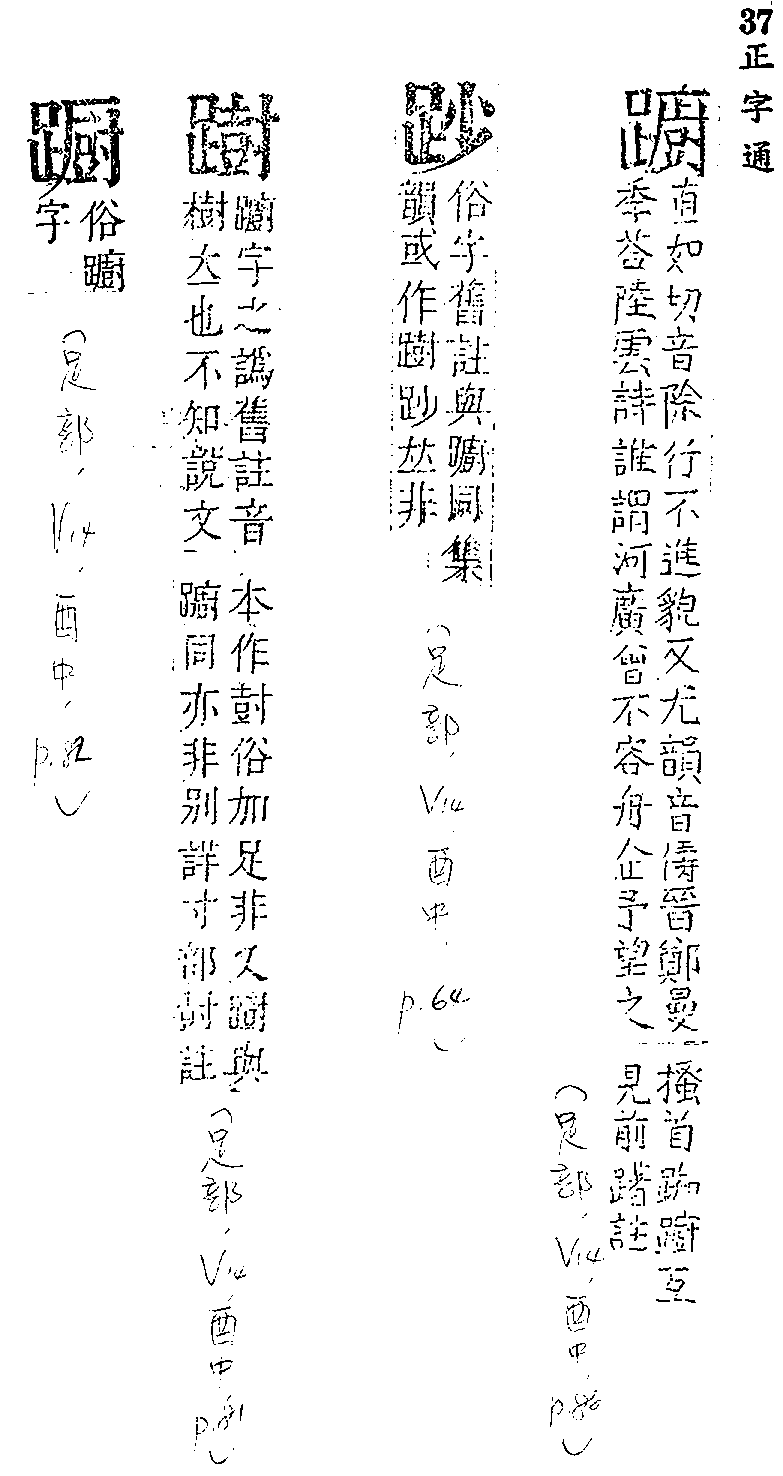 37正字通
躕
直如切音除行不進貌又尤韻音儔晉鄭曼
季荅陸雲詩誰謂河廣曾不容舟企予望之
搔首踟躕互
見前註
(足部,V14,酉中,p.80)
俗字舊註與躕同集
韻或作𠀤非
(足部,V14,酉中,p.64)
躕字之譌舊註音
樹立也不知說文
本作尌俗加足非又與
躕同亦非別詳寸部尌註
(足部,V14,酉中,p.81)
蹰
俗躕
字
(足部,V14,酉中,p.82)